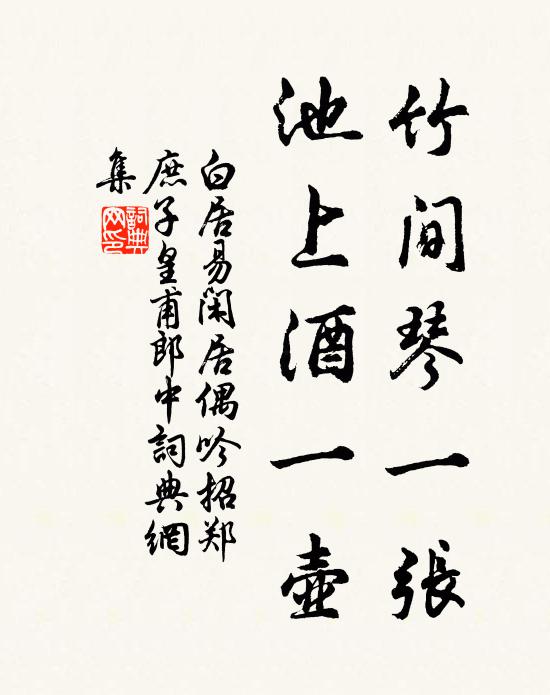 竹間琴一張
池上酒一壺
白居易閑居偶吟招郑
庶子皇甫郎中詞典網
集
詞典网印